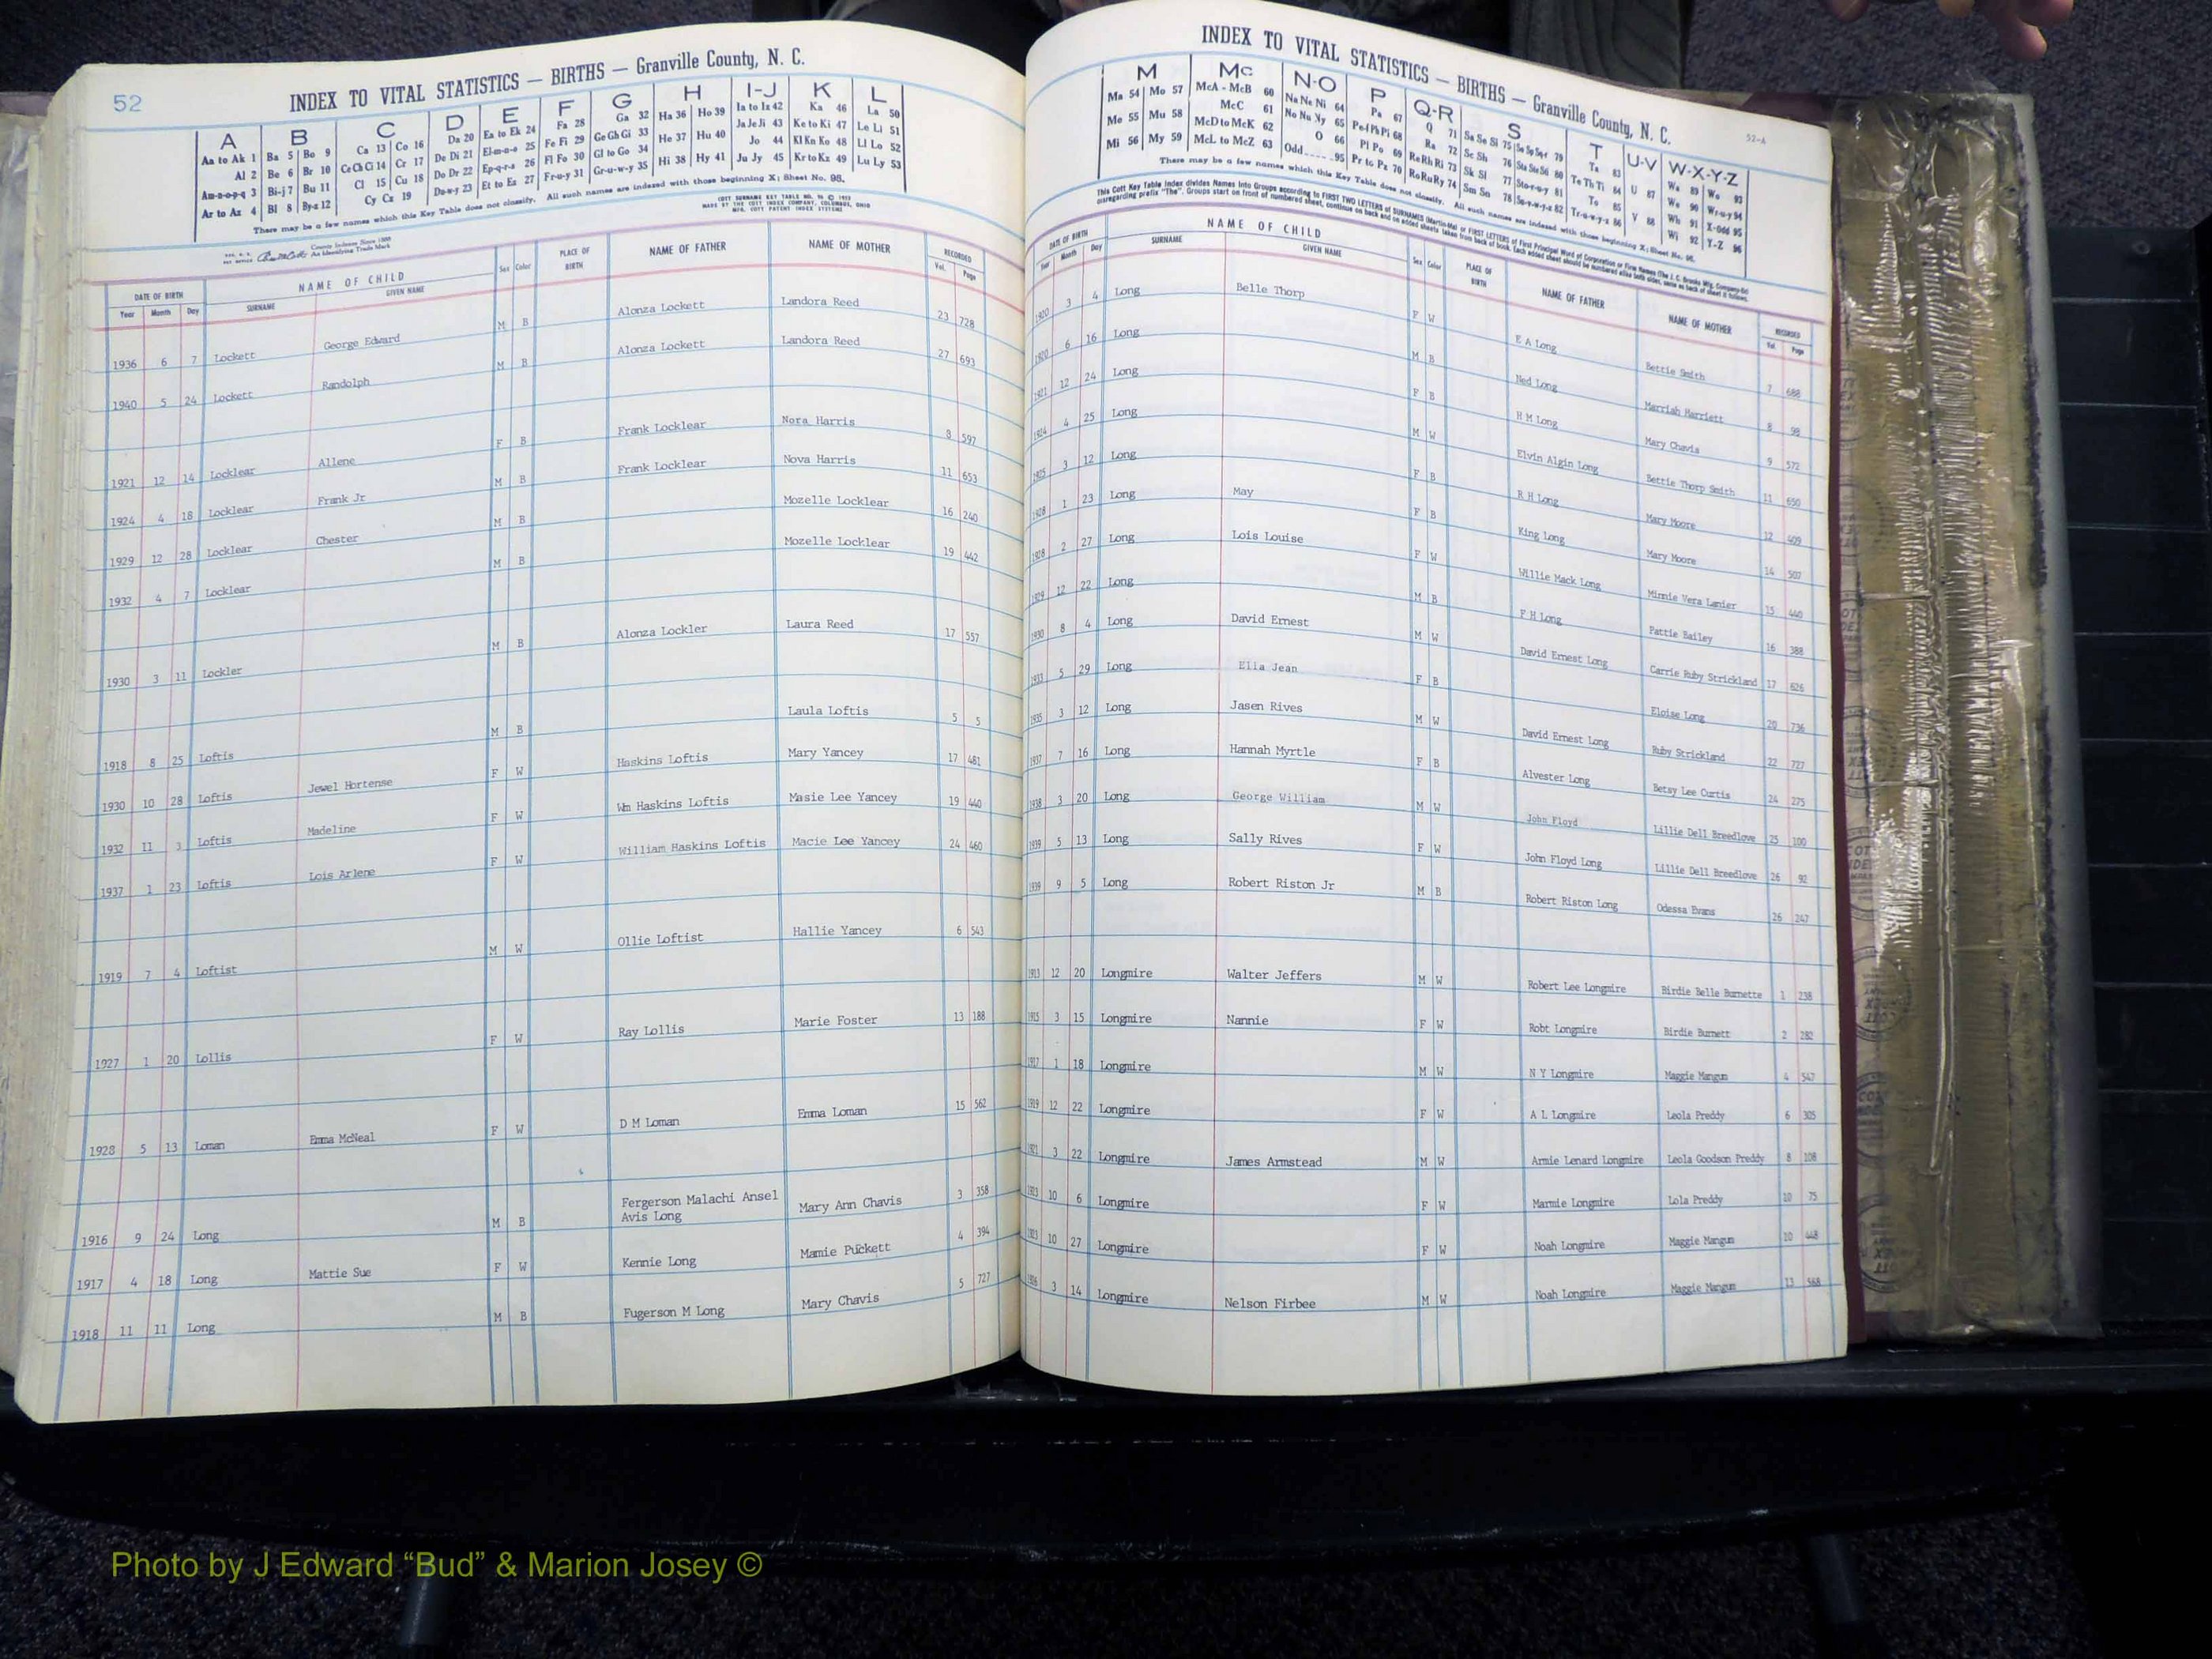 52
INDEX TO VITAL STATISTICS — BIRTHS — Granville County, N. C.
A B C D E F G H I-J K L
Aa to Ak 1 Ba 5 Bo 9 Ca 13 Co 16 Da 20 Ea to Ek 24 Fa 28 Ga 32 Ha 36 Ho 39 Ia to Iz 42 Ka 46 La 50
Al 2 Be 6 Br 10 Ce Ch Ci 14 Cr 17 De Di 21 El-m-n-o 25 Fe Fi 29 Ge Gh Gi 33 He 37 Hu 40 Ja Je Ji 43 Ke to Ki 47 Le Li 51
Am-n-o-p-q 3 Bi-j 7 Bu 11 Cl 15 Cu 18 Do Dr 22 Ep-q-r-s 26 Fl Fo 30 Gl to Go 34 Hi 38 Hy 41 Jo 44 Kl Kn Ko 48 Ll Lo 52
Ar to Az 4 Bl 8 By-z 12 Cy Cz 19 Du-w-y 23 Et to Ez 27 Fr-u-y 31 Gr-u-w-y 35 Ju Jy 45 Kr to Kz 49 Lu Ly 53
There may be a few names which this Key Table does not classify. All such names are indexed with those beginning X; Sheet No. 98.
County Indexes Since 1888
An Identifying Trade Mark
DATE OF BIRTH NAME OF CHILD Sex Color PLACE OF BIRTH NAME OF FATHER NAME OF MOTHER RECORDED
Year Month Day SURNAME GIVEN NAME Vol. Page
1936 6 7 Lockett George Edward M B Alonza Lockett Landora Reed 23 728
1940 5 24 Lockett Randolph M B Alonza Lockett Landora Reed 27 693
1921 12 14 Locklear Allene F B Frank Locklear Nora Harris 8 597
1924 4 18 Locklear Frank Jr M B Frank Locklear Nova Harris 11 653
1929 12 28 Locklear Chester M B Mozelle Locklear 16 240
1932 4 7 Locklear M B Mozelle Locklear 19 442
1930 3 11 Lockler M B Alonza Lockler Laura Reed 17 557
1918 8 25 Loftis M B Laula Loftis 5 5
1930 10 28 Loftis Jewel Hortense F W Haskins Loftis Mary Yancey 17 481
1932 11 3 Loftis Madeline F W Wm Haskins Loftis Masie Lee Yancey 19 440
1937 1 23 Loftis Lois Arlene F W William Haskins Loftis Macie Lee Yancey 24 460
1919 7 4 Loftist M W Ollie Loftist Hallie Yancey 6 543
1927 1 20 Lollis F W Ray Lollis Marie Foster 13 188
1928 5 13 Loman Emma McNeal F W D M Loman Emma Loman 15 562
1916 9 24 Long M B Fergerson Malachi Ansel Avis Long Mary Ann Chavis 3 358
1917 4 18 Long Mattie Sue F W Kennie Long Mamie Puckett 4 394
1918 11 11 Long M B Fugerson M Long Mary Chavis 5 727
INDEX TO VITAL STATISTICS — BIRTHS — Granville County, N. C.
52-A
M Mc N-O P Q-R S T U-V W-X-Y-Z
Ma 54 Mo 57 McA - McB 60 Na Ne Ni 64 Pa 67 Q 71 Sa Se Si 75 Ta 83 Wa 89 Wo 93
Me 55 Mu 58 McC 61 No Nu Ny 65 Ra 72 Sc Sh 76 Te Th Ti 84 U 87 We 90
Mi 56 My 59 McD to McK 62 O 66 Pl Po 69 Re Rh Ri 73 Sk Sl To 85 V 88 Wh 91
McL to McZ 63 Odd 95 Pr to Pz 70 Ro Ru Ry 74 Sm Sn 78 Wi 92 Y-Z 96
There may be a few names which this Key Table does not classify. All such names are indexed with those beginning X; Sheet No. 98.
DATE OF BIRTH NAME OF CHILD Sex Color PLACE OF BIRTH NAME OF FATHER NAME OF MOTHER RECORDED
Year Month Day SURNAME GIVEN NAME Vol. Page
1920 3 4 Long Belle Thorp F W E A Long Bettie Smith 7 688
1920 6 16 Long M B Ned Long Marriah Harriett 8 98
1921 12 24 Long F B H M Long Mary Chavis 9 572
1924 4 25 Long M W Elvin Algin Long Bettie Thorp Smith 11 650
1925 3 12 Long F B R H Long Mary Moore 12 409
1928 1 23 Long May F B King Long Mary Moore 14 507
1928 2 27 Long Lois Louise F W Willie Mack Long Minnie Vera Lanier 15 440
1929 12 22 Long M B F H Long Pattie Bailey 16 388
1930 8 4 Long David Ernest M W David Ernest Long Carrie Ruby Strickland 17 626
1933 5 29 Long Ella Jean F B Eloise Long 20 736
1935 3 12 Long Jasen Rives M W David Ernest Long Ruby Strickland 22 727
1937 7 16 Long Hannah Myrtle F B Alvester Long Betsy Lee Curtis 24 275
1938 3 20 Long George William M W John Floyd Lillie Dell Breedlove 25 100
1939 5 13 Long Sally Rives F W John Floyd Long Lillie Dell Breedlove 26 92
1939 9 5 Long Robert Riston Jr M B Robert Riston Long Odessa Evans 26 247
1913 12 20 Longmire Walter Jeffers M W Robert Lee Longmire Birdie Belle Burnette 1 238
1915 3 15 Longmire Nannie F W Robt Longmire Birdie Burnett 2 282
1917 1 18 Longmire M W N Y Longmire Maggie Mangum 4 547
1919 12 22 Longmire F W A L Longmire Leola Preddy 6 305
1921 3 22 Longmire James Armstead M W Armie Lenard Longmire Leola Goodson Preddy 8 108
1923 10 6 Longmire F W Marmie Longmire Lola Preddy 10 75
1923 10 27 Longmire F W Noah Longmire Maggie Mangum 10 448
1926 3 14 Longmire Nelson Firbee M W Noah Longmire Maggie Mangum 13 568
Photo by J Edward “Bud” & Marion Josey ©